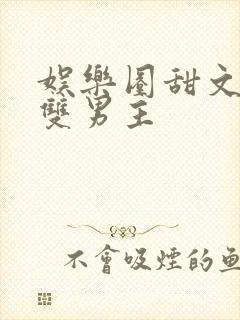 娛樂圈甜文
雙男主
不會吸煙的魚